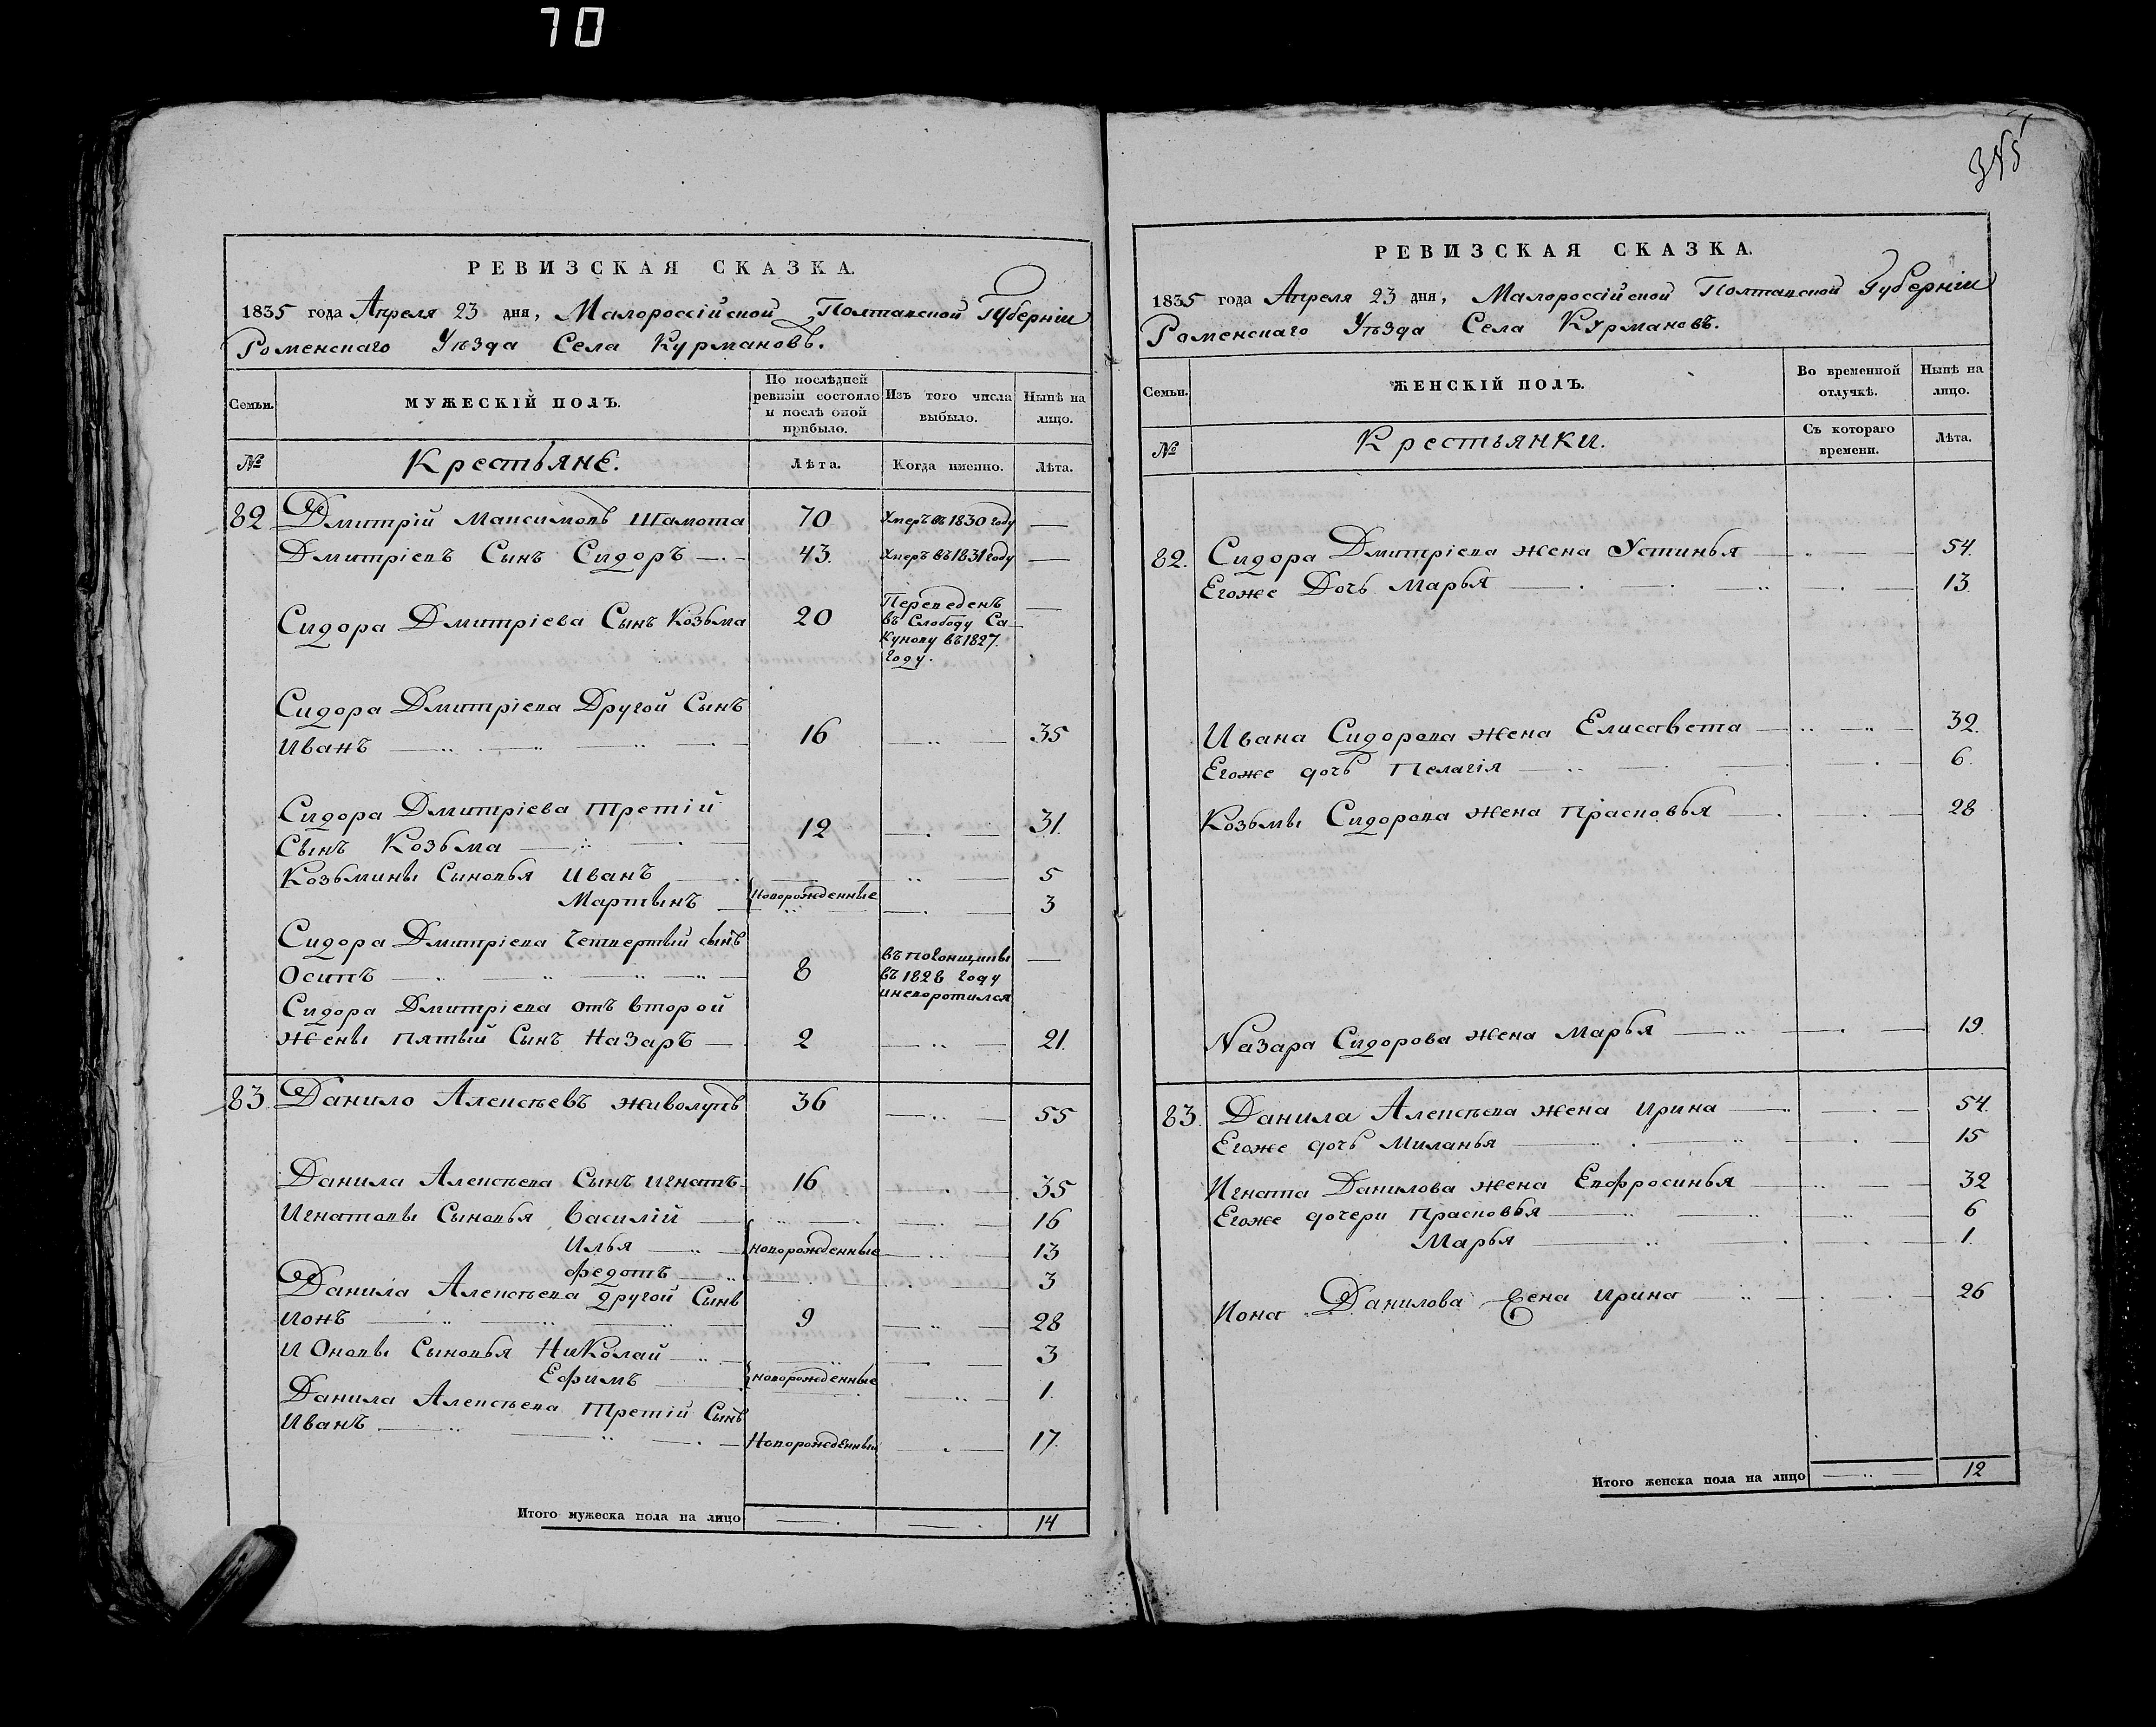 70
РЕВИЗСКАЯ СКАЗКА.
1835 года Апреля 23 дня, Малороссійской Полтавской Губерніи
Роменскаго Уѣзда Села Курмановъ.
Семьи.
МУЖЕСКІЙ ПОЛЪ.
По послѣдней ревизіи состояло и послѣ оной прибыло.
Изъ того числа выбыло.
Нынѣ на лицо.
№
Крестьяне.
Лѣта.
Когда именно.
Лѣта.
82 Дмитрій Максимовъ Шамота 70 Умеръ въ 1830 году —
Дмитріевъ Сынъ Сидоръ — 43. Умеръ въ 1831 году —
Сидора Дмитріева Сынъ Козьма 20 Переведенъ —
въ Слободу Са-
кунову въ 1827.
году.
Сидора Дмитріева Другой Сынъ
Иванъ — 16 — 35
Сидора Дмитріева Третій
Сынъ Козьма — 12 — 31.
Козьмины Сыновья Иванъ — 5
Мартынъ — новорожденные — 3
Сидора Дмитріева Четвертый сынъ
Осипъ — 8 въ погонщики —
въ 1828 году
и невротился
Сидора Дмитріева отъ второй
жены пятый Сынъ Назаръ — 2 — 21.
83. Данило Алексѣевъ Живолупъ 36 — 55
Данила Алексѣева Сынъ Игнатъ 16 — 35
Игнатовы Сыновья Василій — 16
Илья — новорожденные — 13
Федотъ — 3
Данила Алексѣева другой Сынъ
Іонъ — 9 — 28
Іоновы Сыновья Николай — 3
Ефимъ — новорожденные — 1.
Данила Алексѣева Третій Сынъ
Иванъ — Новорожденный — 17.
Итого мужеска пола на лицо — — 14
345
РЕВИЗСКАЯ СКАЗКА.
1835 года Апреля 23 дня, Малороссійской Полтавской Губерніи
Роменскаго Уѣзда Села Курмановъ.
Семьи.
ЖЕНСКІЙ ПОЛЪ.
Во временной отлучкѣ.
Нынѣ на лицо.
№
Крестьянки.
Съ котораго времени.
Лѣта.
82. Сидора Дмитріева жена Устинья — 54.
Егоже Дочь Марья — 13
Ивана Сидорова жена Елисавета — 32.
Егоже дочь Пелагія — 6.
Козьмы Сидорова жена Прасковья — 28
Назара Сидорова жена Марья — 19
83. Данила Алексѣева жена Ирина — 54.
Егоже дочь Миланья — 15
Игната Данилова жена Евфросинья — 32
Егоже дочери Прасковья — 6
Марья — 1.
Иона Данилова жена Ирина — 26
Итого женска пола на лицо — 12